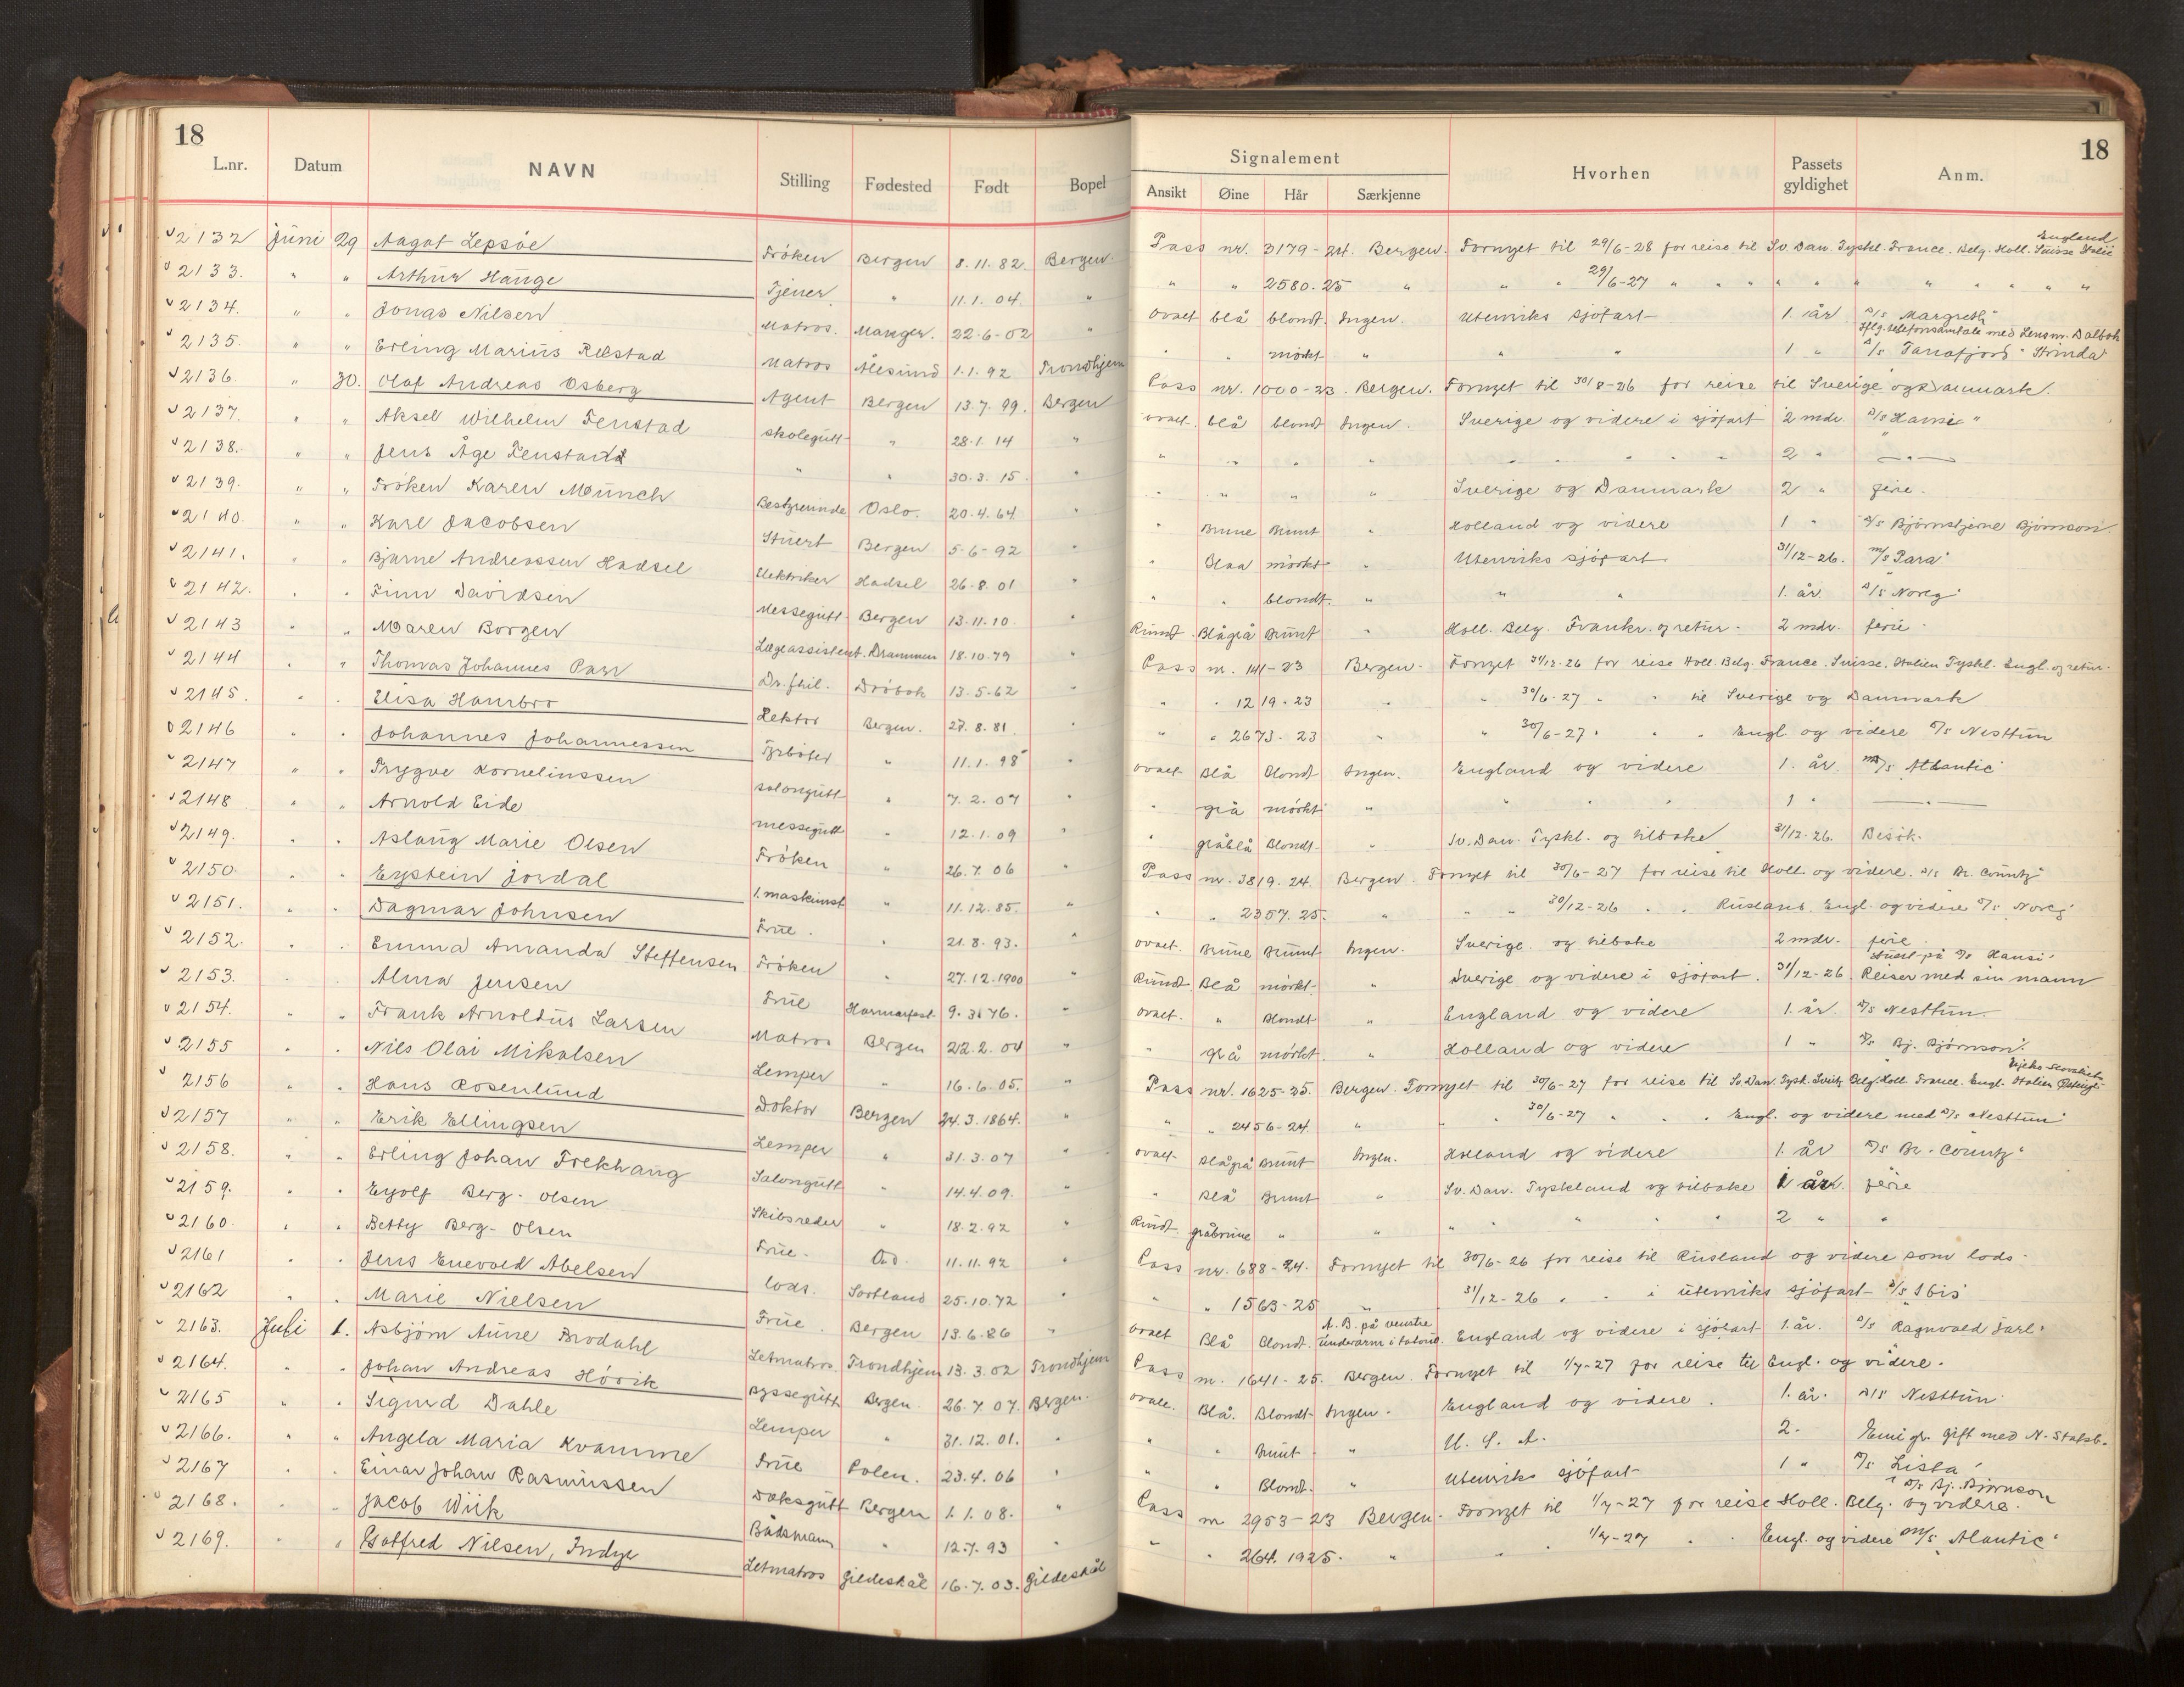 18
L.nr. Datum NAVN Stilling Fødested Født Bopel
2132 Juni 29 Aagot Lepsöe Fröken Bergen 8.11.82. Bergen.
2133. " " Arthur Hauge Tjener " 11.1.04. "
2134. " " Jonas Nilsen Matros. Manger. 22-6-02 "
2135. " " Erling Marius Rekstad Matros Ålesund 1.1.92 Trondhjem
2136. " 30. Olaf Andreas Osberg Agent Bergen 13.7.99. Bergen
2137. " " Aksel Wilhelm Fenstad skolegutt " 28.1.14 "
2138. " " Jens Åge Fenstad " " 30.3.15. "
2139. " " Fröken Karen Munch Bestyrerinde Oslo. 20.4.64. "
2140. " " Karl Jacobsen Stuert Bergen 5-6-92 "
2141. " " Bjarne Andreassen Hadsel Elektriker Hadsel 26.8.01 "
2142. " " Finn Davidsen Messegutt Bergen 13.11.10 "
2143 " " Maren Borgen Lægeassistent. Drammen 18.10.79 "
2144 " " Thomas Johannes Parr Dr. phil. Dröbak 13.5.62 "
2145. " " Elisa Hambro Lektor Bergen. 27.8.81. "
2146 " " Johannes Johannessen Fyrböter " 11.1.98 "
2147 " " Trygve Kornelinssen salongutt " 7.2.07 "
2148 " " Arnold Eide messegutt " 12.1.09 "
2149. " " Aslaug Marie Olsen Fröken " 26.7.06 "
2150. " " Eystein Jordal 1. maskinist " 11.12.85. "
2151. " " Dagmar Johnsen Frue. " 21.8.93. "
2152. " " Emma Amanda Steffensen Fröken " 27.12.1900 "
2153. " " Alma Jensen Frue Hammerfest 9.3.76. "
2154. " " Frank Arnoldus Larsen Matros Bergen 22.2.04 "
2155 " " Nils Olai Mikalsen Lemper " 16.6.05. "
2156 " " Hans Rosenlund Doktor Bergen 24.3.1864. "
2157 " " Erik Ellingsen Lemper " 31.3.07 "
2158. " " Erling Johan Trekhaug Salongutt " 14.4.09. "
2159. " " Eyolf Berg-Olsen Skibsreder " 18.2.92 "
2160. " " Betty Berg-Olsen Frue. 11.11.92 "
2161 " " Jens Enevold Abelsen lods. Sortland 25.10.72 "
2162 " " Marie Nielsen Frue. Bergen 13.6.86 "
2163. Juli 1. Asbjörn Aune Brodahl Letmatros. Trondhjem 13.3.02 Trondhjem
2164. " " Johan Andreas Hövik Byssegutt Bergen. 26.7.07. Bergen.
2165 " " Sigurd Dahle Lemper " 31.12.01. "
2166. " " Angela Maria Kvamme Frue Polen. 23.4.06 "
2167 " " Einar Johan Rasmussen Dæksgutt Bergen 1.1.08. "
2168. " " Jacob Wiik Båtsmann " 12.7.93 "
2169. " " Gotfred Nilsen, Indyr Letmatros Gildeskål 16.7.03. Gildeskål
18
Signalement Hvorhen Passets gyldighet Anm.
Ansikt Øine Hår Særkjenne
England
Pass nr. 3179-24. Bergen. Fornyet til 29/6-28 for reise til Sv. Dan. Tyskl. France. Belg. Holl. Suisse Italie
" " 2580.25 " " " 29/6-27 " " " " " " " " "
ovalt blå blondt. Ingen. Utenriks sjöfart 1. år s/s Margreth"
Iflg. telefonsamtale med Lensm. Dalbok
" " mörkt " " " 1 " s/s Tanafjord" Strinda
Pass nr. 1000-23. Bergen. Fornyet til 30/8-26 for reise til Sverige og Danmark.
ovalt. blå blondt Ingen. Sverige og videre i sjöfart 2 mdr. s/s Hansi"
" " " " " " " " " 2 " — " —
" " " " Sverige og Danmark 2 " ferie.
" Brune Brunt " Holland og videre 1 " s/s Björnstjerne Björnson
" Blaa mörkt " Utenriks sjöfart 31/12-26. m/s Para"
" " blondt. " " " 1. år. s/s Noreg"
Rundt. Blågrå Brunt " Holl. Belg. Frankr. og retur. 2 mdr. ferie
Pass nr. 141-23 Bergen. Fornyet 31/12-26 for reise Holl. Belg. France. Suisse. Italien Tyskl. Engl. og retur.
" " 1219.23 " " 30/6-27 " " til Sverige og Danmark
" " 2673.23 " " 30/6-27. " " Engl. og videre s/s Nesttun
ovalt Blå Blondt Ingen. England og videre 1. år. m/s Atlantic
" grå mörkt " " " " 1 " — " —
" gråblå Blondt " Sv. Dan. Tyskl. og tilbake 31/12-26. Besök.
Pass nr. 3819.24 Bergen. Fornyet til 30/6-27 for reise til Holl. og videre. s/s Br. County"
" " 2357.25. " " " 30/12-26 " " Rusland. Engl. og videre s/s Noreg"
ovalt. Brune Brunt Ingen. Sverige. og tilbake 2 mdr. ferie
Stuert på s/s Hansi.
Rundt Blå mörkt " Sverige og videre i sjöfart. 31/12-26. Reiser med sin mann
ovalt. " Blondt " England og videre 1. år. s/s Nesttun.
" grå mörkt. " Holland og videre 1 " s/s Bj. Björnson".
Pass nr. 1625-25. Bergen. Fornyet til 30/6-27 for reise til Sv. Dan. Tysk. Sveits Belg. Holl. France. Engl. Italien
" " 2456-24 " " " 30/6-27 " " " Engl. og videre med s/s Nesttun"
ovalt Blågrå Brunt Ingen. Holland og videre 1. år s/s Br. County"
" Blå Brunt " Sv. Dan. Tyskland og tilbake 1 år. ferie
Rundt. gråbrune " " " " " " " 2 " "
Pass nr. 688-24. Fornyet til 30/6-26 for reise til Rusland og videre som lods.
" " 1563-25 " 31/12-26 " " i utenriks sjöfart s/s Ibis"
A. B. på venstre
ovalt Blå Blondt. underarm i tatov. England og videre i sjöfart 1. år. s/s Ragnvald Jarl.
Pass nr. 1641-25. Bergen. Fornyet til 1/7-27 for reise til Engl. og videre.
ovale. Blå. Blondt Ingen. England og videre. 1. år. s/s Nesttun
" " Brunt " U. S. A. 2. Emigr. Gift med N. Statsb.
" " Blondt. " Utenriks sjöfart 1 " s/s Lista"
s/s Bj. Björnson
Pass nr 2953-23 Bergen. Fornyet til 1/7-27 for reise Holl. Belg. og videre.
" " 264.1925. " " " 1/7-27 " " Engl. og videre m/s Atlantic"